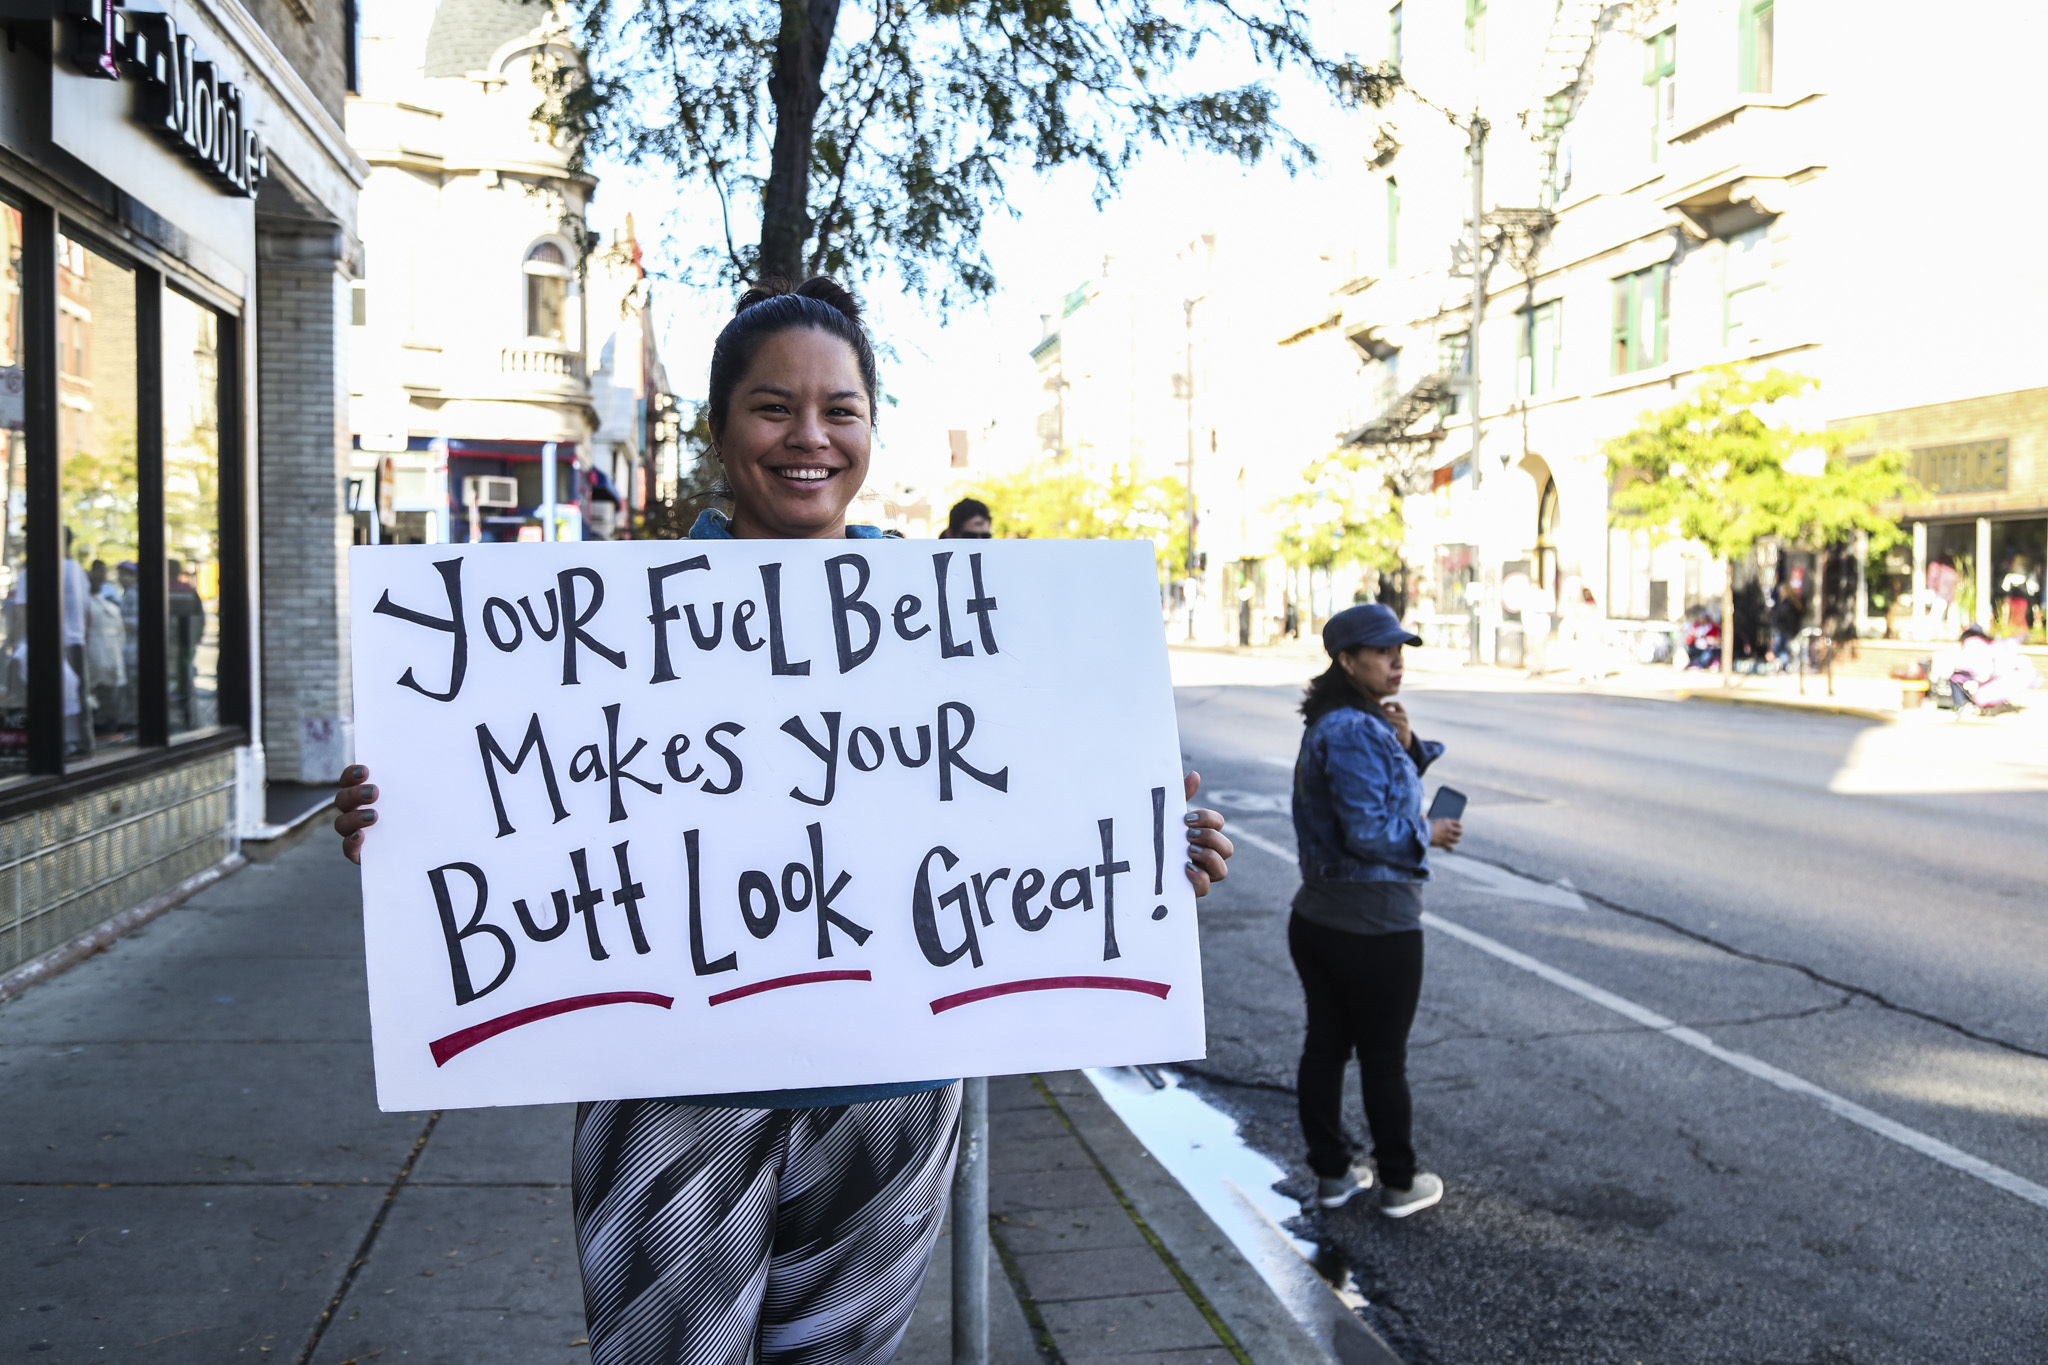 T-Mobile
Your Fuel Belt
Makes your
Butt Look Great!